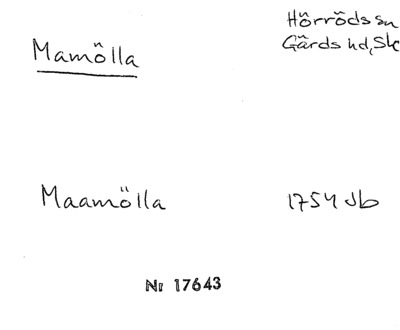 Mamölla
Hörröds sn
Gärds hd, Sk
Maamölla
1754 Jb
Nr 17643